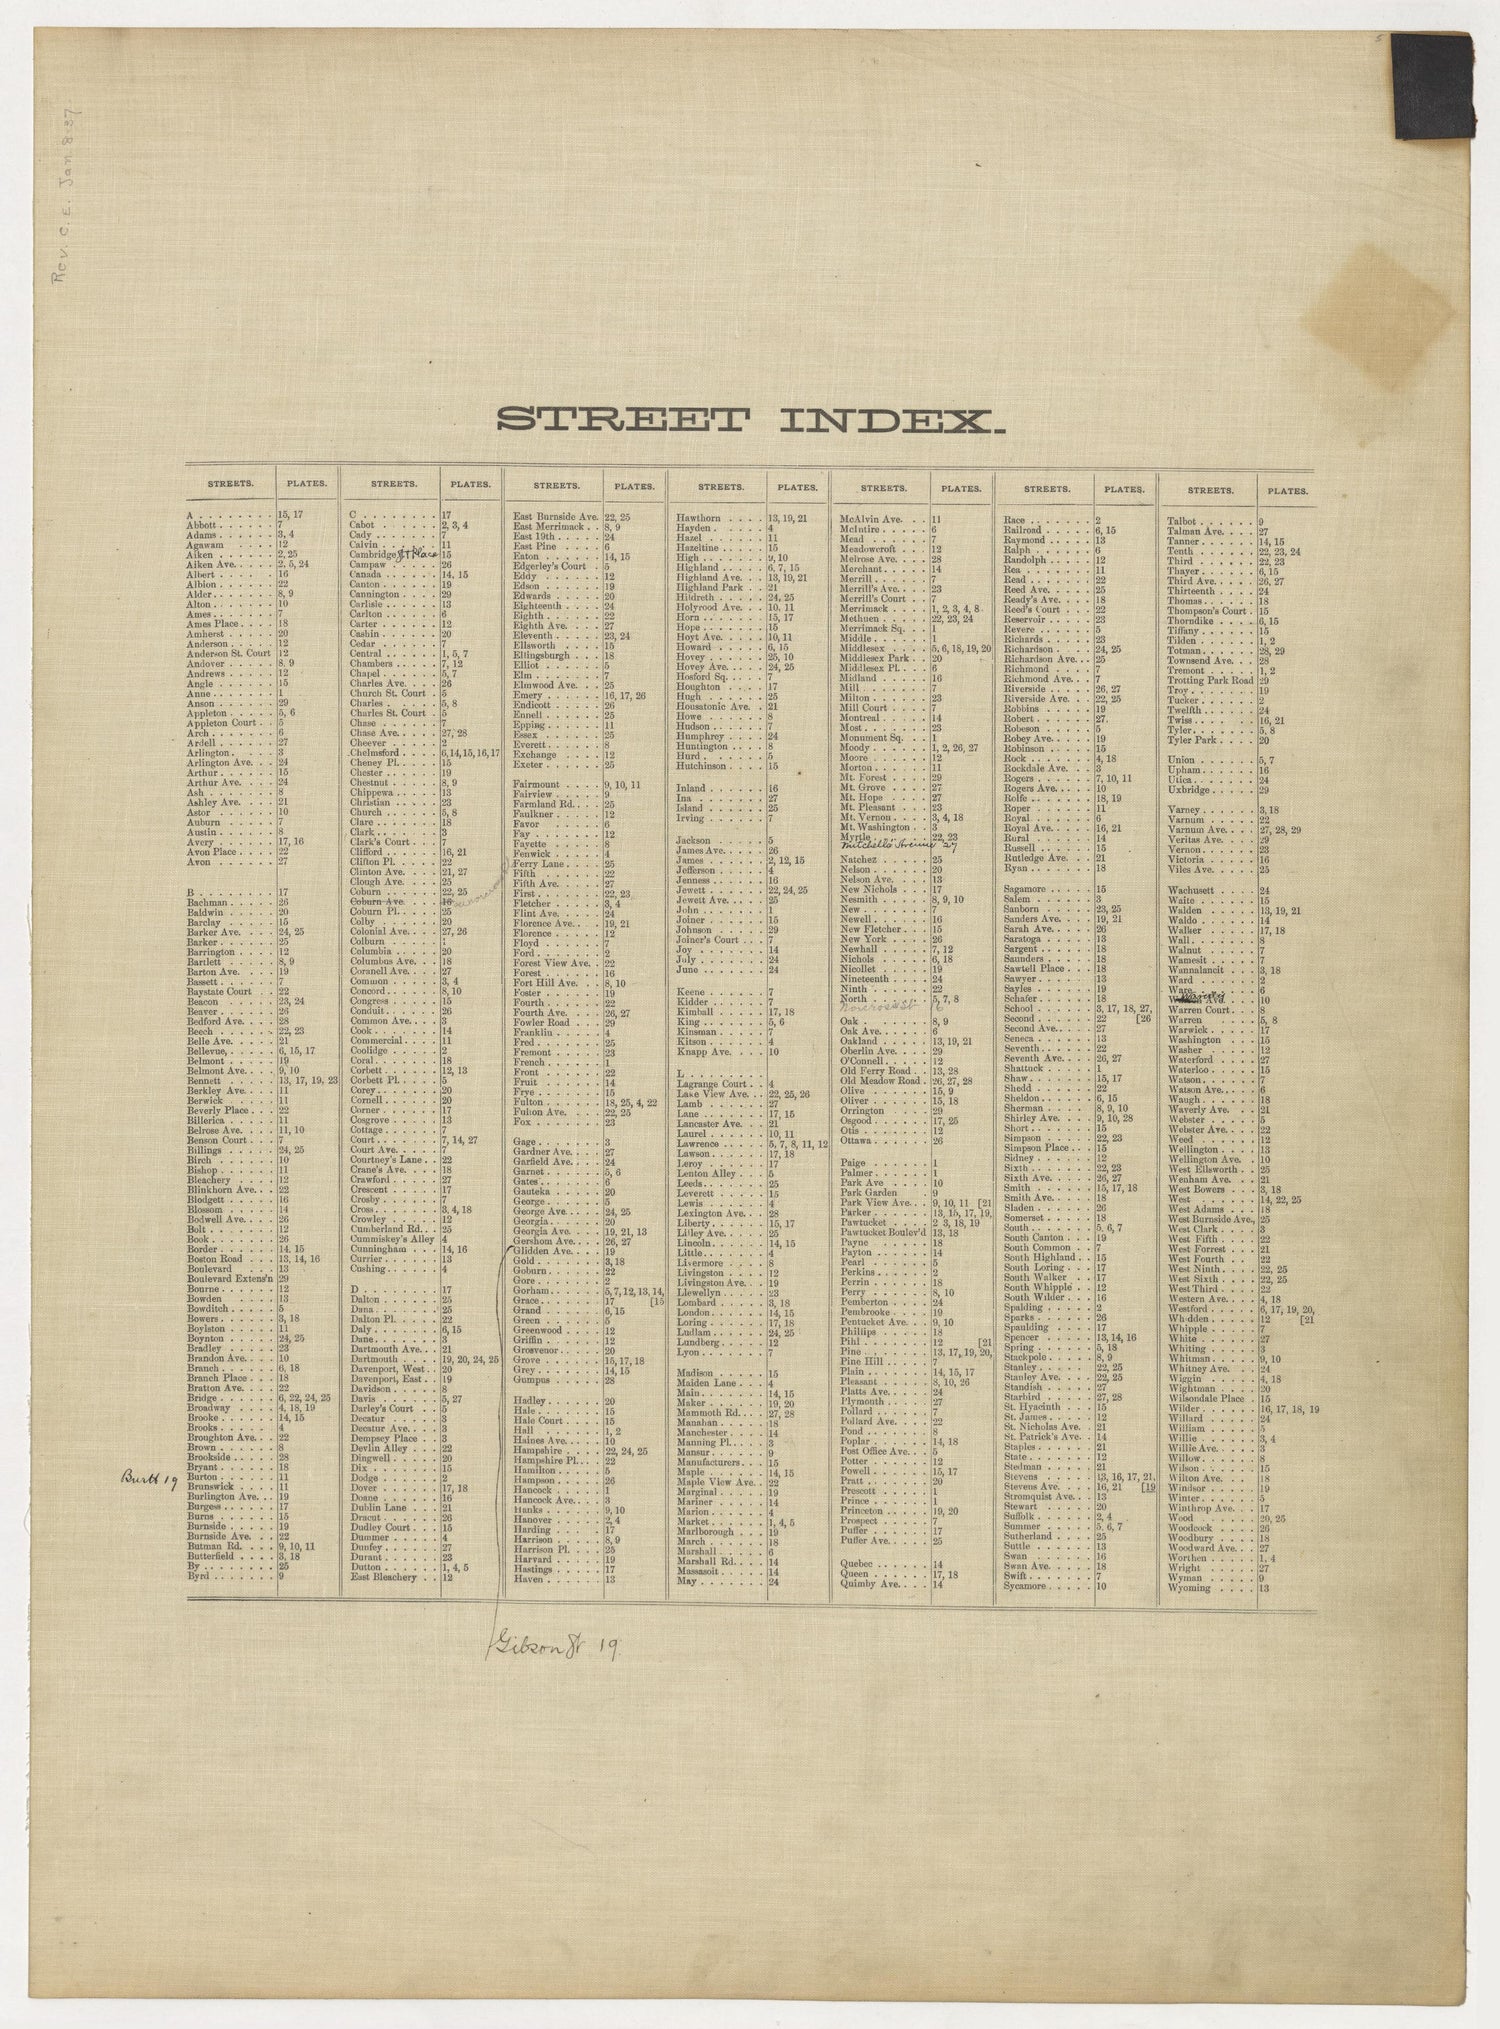 Rev. C. E. Jan 8:37
STREET INDEX.
STREETS. PLATES.
A 15, 17
Abbott 7
Adams 3, 4
Agawam 12
Aiken 2, 25
Aiken Ave. 2, 5, 24
Albert 16
Albion 22
Alder 8, 9
Alton 10
Ames 7
Ames Place 18
Amherst 20
Anderson 12
Anderson St. Court 12
Andover 8, 9
Andrews 12
Angle 15
Anne 1
Anson 29
Appleton 5, 6
Appleton Court 5
Arch 6
Ardell 27
Arlington 3
Arlington Ave. 24
Arthur 15
Arthur Ave. 24
Ash 8
Ashley Ave. 21
Astor 10
Auburn 7
Austin 8
Avery 17, 16
Avon Place 22
Avon 27
B 17
Bachman 26
Baldwin 20
Barclay 15
Barker Ave. 24, 25
Barker 25
Barrington 12
Bartlett 8, 9
Barton Ave. 19
Bassett 7
Baystate Court 22
Beacon 23, 24
Beaver 26
Bedford Ave. 28
Beech 22, 23
Belle Ave. 21
Bellevue, 6, 15, 17
Belmont 19
Belmont Ave. 9, 10
Bennett 13, 17, 19, 23
Berkley Ave. 11
Berwick 11
Beverly Place 22
Billerica 11
Belrose Ave. 11, 10
Benson Court 7
Billings 24, 25
Birch 10
Bishop 11
Bleachery 12
Blinkhorn Ave. 22
Blodgett 16
Blossom 14
Bodwell Ave. 26
Bolt 12
Book 26
Border 14, 15
Boston Road 13, 14, 16
Boulevard 13
Boulevard Extens'n 29
Bourne 12
Bowden 13
Bowditch 5
Bowers 3, 18
Boylston 11
Boynton 24, 25
Bradley 23
Brandon Ave. 10
Branch 6, 18
Branch Place 18
Bratton Ave. 22
Bridge 6, 22, 24, 25
Broadway 4, 18, 19
Brooke 14, 15
Brooks 4
Broughton Ave. 22
Brown 8
Brookside 28
Bryant 18
Burtt 19
Burton 11
Brunswick 11
Burlington Ave. 19
Burgess 17
Burns 15
Burnside 19
Burnside Ave. 22
Butman Rd. 9, 10, 11
Butterfield 3, 18
By 25
Byrd 9
STREETS. PLATES.
C 17
Cabot 2, 3, 4
Cady 7
Calvin 11
Cambridge St Place 15
Campaw 26
Canada 14, 15
Canton 19
Cannington 29
Carlisle 13
Carlton 6
Carter 12
Cashin 20
Cedar 7
Central 1, 5, 7
Chambers 7, 12
Chapel 5, 7
Charles Ave. 26
Church St. Court 5
Charles 5, 8
Charles St. Court 5
Chase 7
Chase Ave. 27, 28
Cheever 2
Chelmsford 6,14,15,16,17
Cheney Pl. 15
Chester 19
Chestnut 8, 9
Chippewa 13
Christian 23
Church 5, 8
Clare 18
Clark 3
Clark's Court 7
Clifford 16, 21
Clifton Pl. 22
Clinton Ave. 21, 27
Clough Ave. 25
Coburn 22, 25
Coburn Ave. 16
Coburn Pl. 25
Colby 20
Colonial Ave. 27, 26
Colburn 1
Columbia 20
Columbus Ave. 18
Coranell Ave. 27
Common 3, 4
Concord 8, 10
Congress 15
Conduit 26
Common Ave. 3
Cook 14
Commercial 11
Coolidge 2
Coral 18
Corbett 12, 13
Corbett Pl. 5
Corey 20
Cornell 20
Corner 17
Cosgrove 13
Cottage 7
Court 7, 14, 27
Court Ave. 7
Courtney's Lane 22
Crane's Ave. 18
Crawford 27
Crescent 17
Crosby 7
Cross 3, 4, 18
Crowley 12
Cumberland Rd. 25
Cummiskey's Alley 4
Cunningham 14, 16
Currier 13
Cushing 4
D 17
Dalton 25
Dana 25
Dalton Pl. 22
Daly 6, 15
Dane 3
Dartmouth Ave. 21
Dartmouth 19, 20, 24, 25
Davenport, West 20
Davenport, East 19
Davidson 8
Davis 5, 27
Darley's Court 5
Decatur 3
Decatur Ave. 3
Dempsey Place 3
Devlin Alley 22
Dingwell 20
Dix 15
Dodge 2
Dover 17, 18
Doane 16
Dublin Lane 21
Dracut 26
Dudley Court 15
Dummer 4
Dunfey 27
Durant 23
Dutton 1, 4, 5
East Bleachery 12
STREETS. PLATES.
East Burnside Ave. 22, 25
East Merrimack 8, 9
East 19th 24
East Pine 6
Eaton 14, 15
Edgerley's Court 5
Eddy 12
Edson 19
Edwards 20
Eighteenth 24
Eighth 22
Eighth Ave. 27
Eleventh 23, 24
Ellsworth 15
Ellingsburgh 18
Elliot 5
Elm 7
Elmwood Ave. 25
Emery 16, 17, 26
Endicott 26
Ennell 25
Epping 11
Essex 25
Everett 8
Exchange 12
Exeter 25
Fairmount 9, 10, 11
Fairview 9
Farmland Rd. 25
Faulkner 12
Favor 6
Fay 12
Fayette 8
Fenwick 4
Ferry Lane 25
Fifth 22
Fifth Ave. 27
First 22, 23
Fletcher 3, 4
Flint Ave. 24
Florence Ave. 19, 21
Florence 12
Floyd 7
Ford 2
Forest View Ave. 22
Forest 16
Fort Hill Ave. 8, 10
Foster 19
Fourth 22
Fourth Ave. 26, 27
Fowler Road 29
Franklin 4
Fred 25
Fremont 23
French 1
Front 22
Fruit 14
Frye 15
Fulton 18, 25, 4, 22
Fulton Ave. 22, 25
Fox 23
Gage 3
Gardner Ave. 27
Garfield Ave. 24
Garnet 5, 6
Gates 6
Gauteka 20
George 5
George Ave. 24, 25
Georgia 20
Georgia Ave. 19, 21, 13
Gershom Ave. 26, 27
Glidden Ave. 19
Gold 3, 18
Goburn 22
Gore 2
Gorham 5,7,12,13,14,
Grace 17 [15
Grand 6, 15
Green 5
Greenwood 12
Griffin 12
Grosvenor 20
Grove 15, 17, 18
Grey 14, 15
Gumpus 28
Hadley 20
Hale 15
Hale Court 15
Hall 1, 2
Haines Ave. 10
Hampshire 22, 24, 25
Hampshire Pl. 22
Hamilton 5
Hampson 26
Hancock 1
Hancock Ave. 3
Hanks 9, 10
Hanover 2, 4
Harding 17
Harrison 8, 9
Harrison Pl. 25
Harvard 19
Hastings 17
Haven 13
Gibson St 19
STREETS. PLATES.
Hawthorn 13, 19, 21
Hayden 4
Hazel 11
Hazeltine 15
High 9, 10
Highland 6, 7, 15
Highland Ave. 13, 19, 21
Highland Park 21
Hildreth 24, 25
Holyrood Ave. 10, 11
Horn 15, 17
Hope 15
Hoyt Ave. 10, 11
Howard 6, 15
Hovey 25, 10
Hovey Ave. 24, 25
Hosford Sq. 7
Houghton 17
Hugh 25
Housatonic Ave. 21
Howe 8
Hudson 7
Humphrey 24
Huntington 8
Hurd 5
Hutchinson 15
Inland 16
Ina 27
Island 25
Irving 7
Jackson 5
James Ave. 26
James 2, 12, 15
Jefferson 4
Jenness 16
Jewett 22, 24, 25
Jewett Ave. 25
John 1
Joiner 15
Johnson 29
Joiner's Court 7
Joy 14
July 24
June 24
Keene 7
Kidder 7
Kimball 17, 18
King 5, 6
Kinsman 7
Kitson 4
Knapp Ave. 10
L
Lagrange Court 4
Lake View Ave. 22, 25, 26
Lamb 27
Lane 17, 15
Lancaster Ave. 21
Laurel 10, 11
Lawrence 5, 7, 8, 11, 12
Lawson 17, 18
Leroy 17
Lenton Alley 5
Leeds 25
Leverett 15
Lewis 4
Lexington Ave. 28
Liberty 15, 17
Lilley Ave. 25
Lincoln 14, 15
Little 4
Livermore 8
Livingston 12
Livingston Ave. 19
Llewellyn 23
Lombard 3, 18
London 14, 15
Loring 17, 18
Ludlam 24, 25
Lundberg 12
Lyon 7
Madison 15
Maiden Lane 4
Main 14, 15
Maker 19, 20
Mammoth Rd. 27, 28
Manahan 18
Manchester 14
Manning Pl. 3
Mansur 9
Manufacturers 15
Maple 14, 15
Maple View Ave. 22
Marginal 19
Mariner 14
Marion 4
Market 1, 4, 5
Marlborough 19
March 18
Marshall 6
Marshall Rd. 14
Massasoit 14
May 24
STREETS. PLATES.
McAlvin Ave. 11
McIntire 6
Mead 7
Meadowcroft 12
Melrose Ave. 28
Merchant 14
Merrill 7
Merrill's Ave. 23
Merrill's Court 7
Merrimack 1, 2, 3, 4, 8
Methuen 22, 23, 24
Merrimack Sq. 1
Middle 1
Middlesex 5, 6, 18, 19, 20
Middlesex Park 20
Middlesex Pl. 6
Midland 16
Mill 7
Milton 23
Mill Court 7
Montreal 14
Most 23
Monument Sq. 1
Moody 1, 2, 26, 27
Moore 12
Morton 11
Mt. Forest 29
Mt. Grove 27
Mt. Hope 27
Mt. Pleasant 23
Mt. Vernon 3, 4, 18
Mt. Washington 3
Myrtle 22, 23
Mitchells Avenue 27
Natchez 25
Nelson 20
Nelson Ave. 13
New Nichols 17
Nesmith 8, 9, 10
New 7
Newell 16
New Fletcher 15
New York 26
Newhall 7, 12
Nichols 6, 18
Nicollet 19
Nineteenth 24
Ninth 22
North 5, 7, 8
Norcross St 6
Oak 8, 9
Oak Ave. 6
Oakland 13, 19, 21
Oberlin Ave. 29
O'Connell 12
Old Ferry Road 13, 28
Old Meadow Road 26, 27, 28
Olive 15, 9
Oliver 15, 18
Orrington 29
Osgood 17, 25
Otis 12
Ottawa 26
Paige 1
Palmer 1
Park Ave 10
Park Garden 9
Park View Ave. 9, 10, 11 [21
Parker 13, 15, 17, 19,
Pawtucket 2 3, 18, 19
Pawtucket Boulev'd 13, 18
Payne 18
Payton 14
Pearl 5
Perkins 2
Perrin 18
Perry 8, 10
Pemberton 24
Pembrooke 19
Pentucket Ave. 9, 10
Phillips 18
Pihl 12 [21
Pine 13, 17, 19, 20,
Pine Hill 7
Plain 14, 15, 17
Pleasant 8, 10, 26
Platts Ave. 24
Plymouth 27
Pollard 7
Pollard Ave. 22
Pond 8
Poplar 14, 18
Post Office Ave. 5
Potter 12
Powell 15, 17
Pratt 20
Prescott 1
Prince 1
Princeton 19, 20
Prospect 7
Puffer 17
Puffer Ave. 25
Quebec 14
Queen 17, 18
Quimby Ave. 14
STREETS. PLATES.
Race 2
Railroad 6, 15
Raymond 13
Ralph 6
Randolph 12
Rea 11
Read 22
Reed Ave. 25
Ready's Ave. 18
Reed's Court 22
Reservoir 23
Revere 5
Richards 23
Richardson 24, 25
Richardson Ave. 25
Richmond 7
Richmond Ave. 7
Riverside 26, 27
Riverside Ave. 22, 25
Robbins 19
Robert 27
Robeson 5
Robey Ave. 19
Robinson 15
Rock 4, 18
Rockdale Ave. 3
Rogers 7, 10, 11
Rogers Ave. 10
Rolfe 18, 19
Roper 11
Royal 6
Royal Ave. 16, 21
Rural 14
Russell 15
Rutledge Ave. 21
Ryan 18
Sagamore 15
Salem 3
Sanborn 23, 25
Sanders Ave. 19, 21
Sarah Ave. 26
Saratoga 13
Sargent 18
Saunders 18
Sawtell Place 18
Sawyer 13
Sayles 19
Schafer 18
School 3, 17, 18, 27,
Second 22 [26
Second Ave. 27
Seneca 13
Seventh 22
Seventh Ave. 26, 27
Shattuck 1
Shaw 15, 17
Shedd 22
Sheldon 6, 15
Sherman 8, 9, 10
Shirley Ave. 9, 10, 28
Short 15
Simpson 22, 23
Simpson Place 15
Sidney 12
Sixth 22, 23
Sixth Ave. 26, 27
Smith 15, 17, 18
Smith Ave. 18
Sladen 26
Somerset 18
South 5, 6, 7
South Canton 19
South Common 7
South Highland 15
South Loring 17
South Walker 17
South Whipple 12
South Wilder 16
Spalding 2
Sparks 26
Spaulding 17
Spencer 13, 14, 16
Spring 5, 18
Stackpole 8, 9
Stanley 22, 25
Stanley Ave. 22, 25
Standish 27
Starbird 27, 28
St. Hyacinth 15
St. James 12
St. Nicholas Ave. 21
St. Patrick's Ave. 14
Staples 21
State 12
Stedman 21
Stevens 13, 16, 17, 21,
Stevens Ave. 16, 21 [19
Stromquist Ave. 13
Stewart 20
Suffolk 2, 4
Summer 5, 6, 7
Sutherland 25
Suttle 13
Swan 16
Swan Ave. 18
Swift 7
Sycamore 10
STREETS. PLATES.
Talbot 9
Talman Ave. 27
Tanner 14, 15
Tenth 22, 23, 24
Third 22, 23
Thayer 6, 15
Third Ave. 26, 27
Thirteenth 24
Thomas 18
Thompson's Court 15
Thorndike 6, 15
Tiffany 15
Tilden 1, 2
Totman 28, 29
Townsend Ave. 28
Tremont 1, 2
Trotting Park Road 29
Troy 19
Tucker 2
Twelfth 24
Twiss 16, 21
Tyler 5, 8
Tyler Park 20
Union 5, 7
Upham 16
Utica 24
Uxbridge 29
Varney 3, 18
Varnum 22
Varnum Ave. 27, 28, 29
Veritas Ave. 29
Vernon 23
Victoria 16
Viles Ave. 25
Wachusett 24
Waite 15
Walden 13, 19, 21
Waldo 14
Walker 17, 18
Wall 8
Walnut 7
Wamesit 7
Wannalancit 3, 18
Ward 2
Ware 6
Ave. 10
Warren Court 8
Warren 5, 8
Warwick 17
Washington 15
Washer 12
Waterford 27
Waterloo 15
Watson 7
Watson Ave. 6
Waugh 18
Waverly Ave. 21
Webster 5
Webster Ave. 22
Weed 12
Wellington 13
Wellington Ave. 10
West Ellsworth 25
Wenham Ave. 21
West Bowers 3, 18
West 14, 22, 25
West Adams 18
West Burnside Ave., 25
West Clark 3
West Fifth 22
West Forrest 21
West Fourth 22
West Ninth 22, 25
West Sixth 22, 25
West Third 22
Western Ave. 4, 18
Westford 6, 17, 19, 20,
Whidden 12 [21
Whipple 7
White 27
Whiting 3
Whitman 9, 10
Whitney Ave. 24
Wiggin 4, 18
Wightman 20
Wilsondale Place 15
Wilder 16, 17, 18, 19
Willard 24
William 5
Willie 3, 4
Willie Ave. 3
Willow 8
Wilson 15
Wilton Ave. 18
Windsor 19
Winter 5
Winthrop Ave. 17
Wood 20, 25
Woodcock 26
Woodbury 18
Woodward Ave. 27
Worthen 1, 4
Wright 27
Wyman 9
Wyoming 13